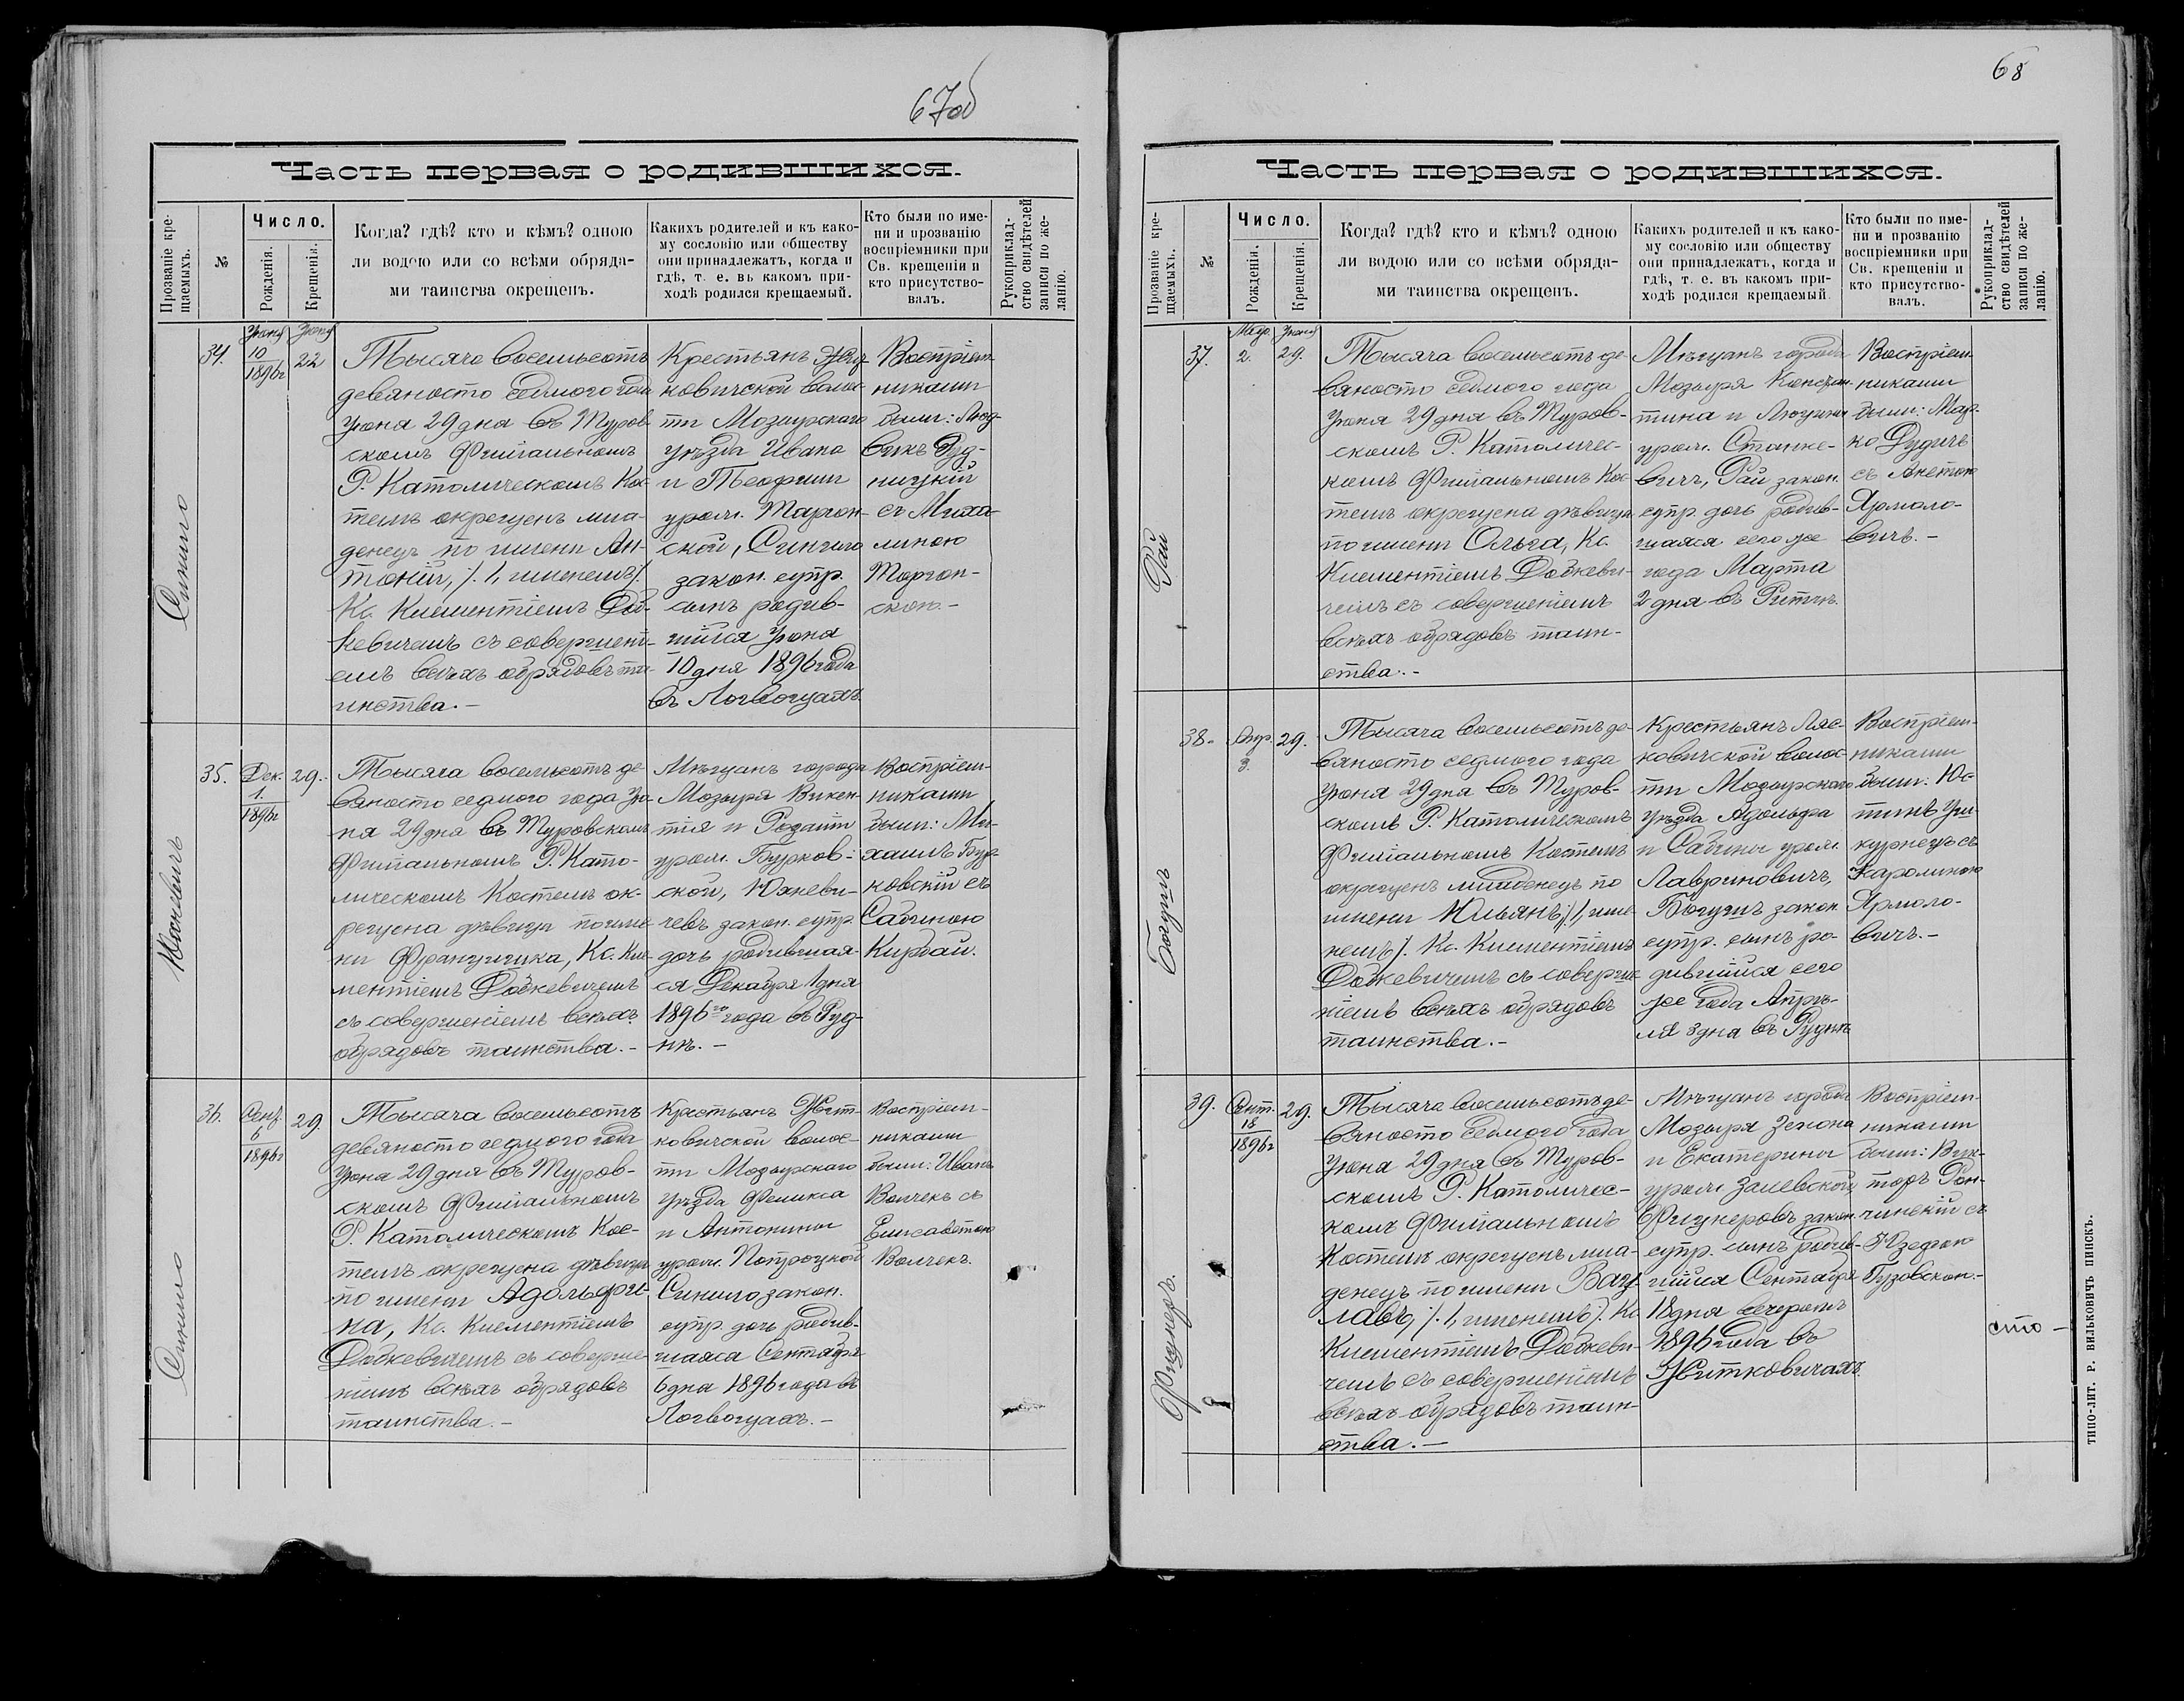 67об
Часть первая о родившихся.
Прозваніе кре-
щаемыхъ.
№
Число.
Рожденія.
Крещенія.
Когда? гдѣ? кто и кѣмъ? одною
ли водою или со всѣми обряда-
ми таинства окрещенъ.
Какихъ родителей и къ како-
му сословію или обществу
они принадлежатъ, когда и
гдѣ, т. е. въ какомъ при-
ходѣ родился крещаемый.
Кто были по име-
ни и прозванію
воспріемники при
Св. крещеніи и
кто присутство-
валъ.
Рукоприклад-
ство свидѣтелей
записи по же-
ланію.
34.
Іюня
10
1896г
Іюня
22
Тысяча восемьсотъ
девяносто седмого года
Іюня 29 дня въ Туров-
скомъ Филіальномъ
Р. Католическомъ Кос-
телѣ окрещенъ мла-
денецъ по имени Ан-
тоній, /. 1, именемъ/.
Кс. Климентіемъ Дод-
кевичемъ съ совершені-
емъ всѣхъ обрядовъ та-
инства. –
Крестьянъ
ковичской волос-
ти Мозырскаго
уѣзда Ивана
и Теофили
урож.
ской,
закон. супр.
сынъ родив-
шійся Іюня
10 дня 1896 года
въ Логвощахъ.
Воспріем-
никами
были: Люд-
викъ Руд-
ницкій
съ Миха-
линою
ской. –
35.
Дек.
1.
1896г
29.
Юхневичъ
Тысяча восемьсотъ де-
вяносто седмого года Ію-
ня 29 дня въ Туровскомъ
Филіальномъ Р. Като-
лическомъ Костелѣ ок-
рещена дѣвица по име-
ни Францишка, Кс. Кли-
ментіемъ Додкевичемъ
съ совершеніемъ всѣхъ
обрядовъ таинства. –
Мѣщанъ города
Мозыря Викен-
тія и Розаліи
урож. Бурков-
ской, Юхневи-
чевъ закон. супр.
дочь родившая-
ся Декабря 1 дня
1896го года въ Руд-
нѣ. –
Воспріем-
никами
были: Ми-
хаилъ Бур-
ковскій съ
Сабиною
Курбай.
36.
Сент.
6
1896г
29.
Тысяча восемьсотъ
девяносто седмого года
Іюня 29 дня въ Туров-
скомъ Филіальномъ
Р. Католическомъ Кос-
телѣ окрещена дѣвица
по имени Адольфи-
на, Кс. Климентіемъ
Додкевичемъ съ соверше-
ніемъ всѣхъ обрядовъ
таинства. –
Крестьянъ Жит-
ковичской волос-
ти Мозырскаго
уѣзда Феликса
и Антонины
урож.
закон.
супр. дочь родив-
шаяся Сентября
6 дня 1896 года въ
Логвощахъ. –
Воспріем-
никами
были: Иванъ
Волчекъ съ
Елисаветою
Волчекъ.
68
Часть первая о родившихся.
Прозваніе кре-
щаемыхъ.
№
Число.
Рожденія.
Крещенія.
Когда? гдѣ? кто и кѣмъ? одною
ли водою или со всѣми обряда-
ми таинства окрещенъ.
Какихъ родителей и къ како-
му сословію или обществу
они принадлежатъ, когда и
гдѣ, т. е. въ какомъ при-
ходѣ родился крещаемый
Кто были по име-
ни и прозванію
воспріемники при
Св. крещеніи и
кто присутство-
валъ.
Рукоприклад-
ство свидѣтелей
записи по же-
ланію.
37.
2.
Іюня
29.
Рай
Тысяча восемьсотъ де-
вяносто седмого года
Іюня 29 дня въ Туров-
скомъ Р. Католичес-
комъ Филіальномъ Кос-
телѣ окрещена дѣвица
по имени Ольга, Кс.
Климентіемъ Додкеви-
чемъ съ совершеніемъ
всѣхъ обрядовъ таин-
ства. –
Мѣщанъ города
Мозыря Констан-
тина и Люцыны
урож. Станке-
вичъ, Рай закон.
супр. дочь родив-
шаяся сего же
года Марта
2 дня въ
Воспріем-
никами
были: Мар-
ко Дудичъ
съ Анетою
Ярмоло-
вичъ. –
38.
Апр.
3.
29.
Богушъ
Тысяча восемьсотъ де-
вяносто седмого года
Іюня 29 дня въ Туров-
скомъ Р. Католическомъ
Филіальномъ Костелѣ
окрещенъ младенецъ по
имени Юльянъ, /. 1, име-
немъ/. Кс. Климентіемъ
Додкевичемъ съ соверше-
ніемъ всѣхъ обрядовъ
таинства. –
Крестьянъ Ляс-
ковичской волос-
ти Мозырскаго
уѣзда Адольфа
и Сабины урож.
Лавриновичъ,
Богушъ закон.
супр. сынъ ро-
дившійся сего
же года Апрѣ-
ля 3 дня въ Руднѣ
Воспріем-
никами
были: Юс-
тинъ
съ
Каролиною
Ярмоло-
вичъ. –
39.
Сент.
18
1896г
29.
Фицнеръ.
Тысяча восемьсотъ де-
вяносто седмого года
Іюня 29 дня въ Туров-
скомъ Р. Католичес-
комъ Филіальномъ
Костелѣ окрещенъ мла-
денецъ по имени Вац-
лавъ, /. 1, именемъ/. Кс.
Климентіемъ Додкеви-
чемъ съ совершеніемъ
всѣхъ обрядовъ таин-
ства. –
Мѣщанъ города
Мозыря Зенона
и Екатерины
урож. Залевской,
Фицнеровъ закон.
супр. сынъ родив-
шійся Сентября
18 дня вечеромъ
1896 года въ
Житковичахъ.
Воспріем-
никами
были: Вик-
торъ Рон-
чинскій съ
Юзефою
Гузовскою. –
сто –
ТИПО-ЛИТ. Р. ВИЛЬКОВИЧЪ ПИНСКЪ.